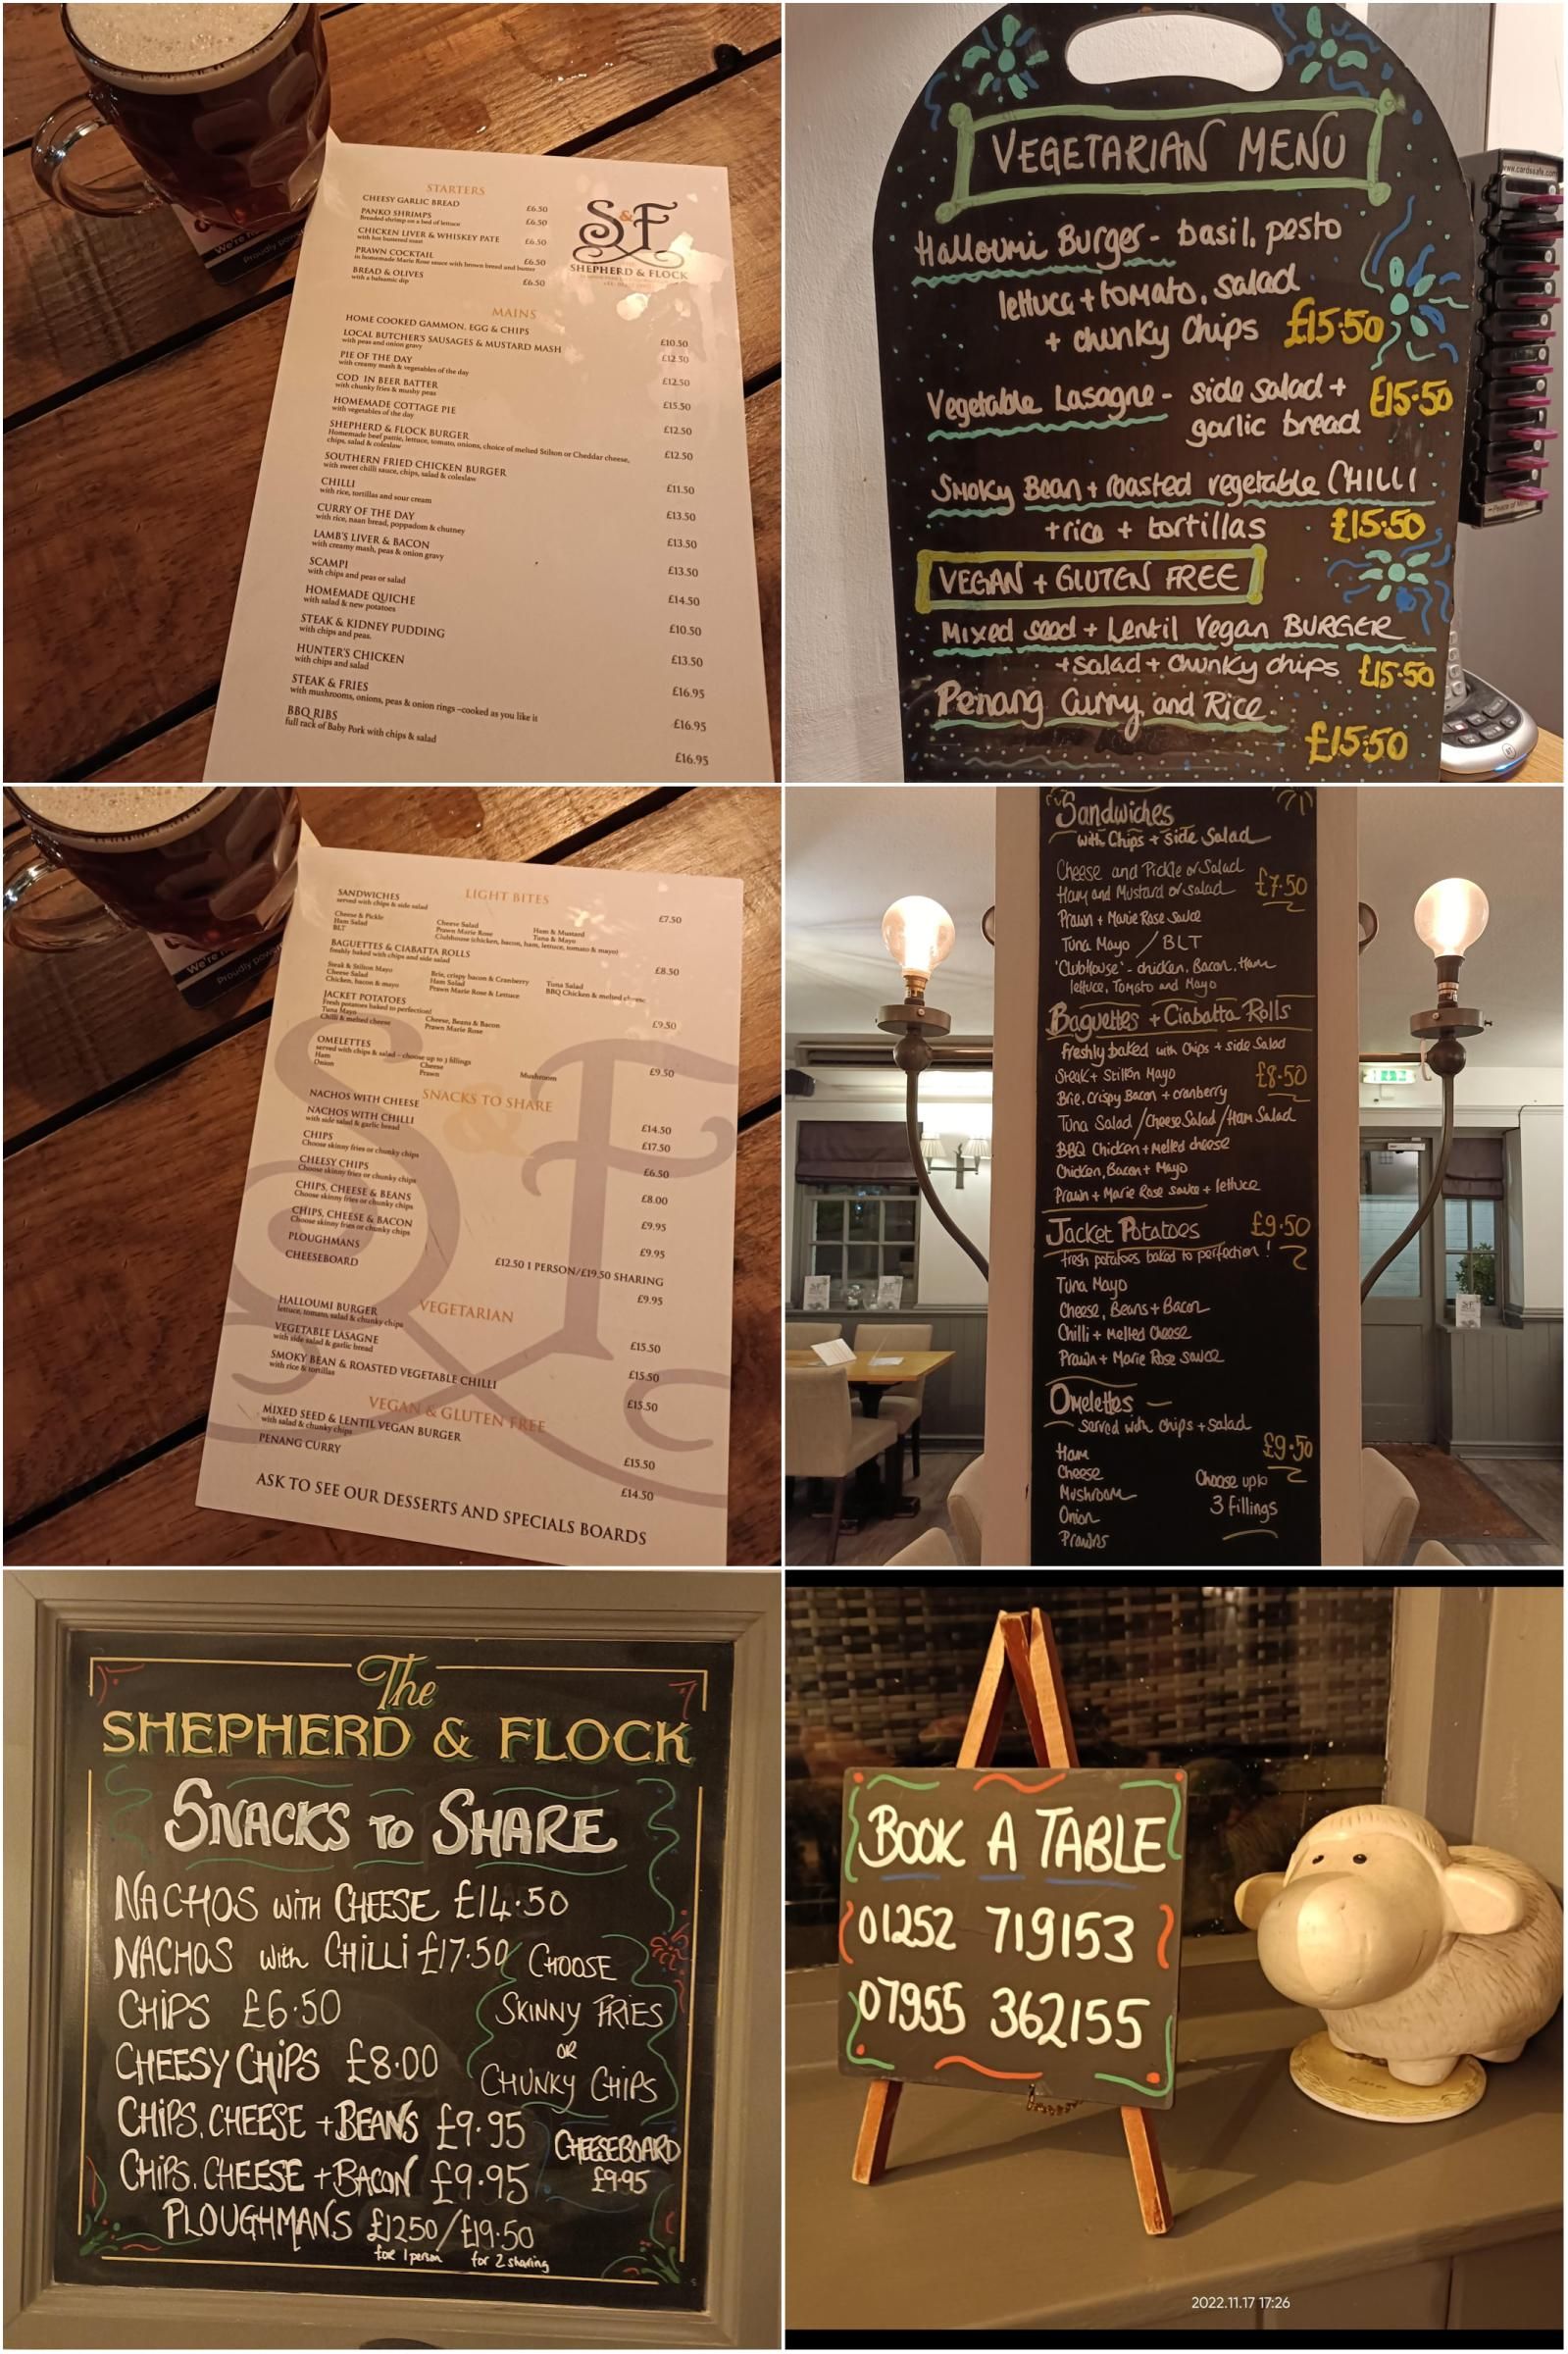 STARTERS
CHEESY GARLIC BREAD £6.50
PANKO SHRIMPS £6.50
Breaded shrimp on a bed of lettuce
CHICKEN LIVER & WHISKEY PATE £6.50
with hot buttered toast
PRAWN COCKTAIL £6.50
in homemade Marie Rose sauce with brown bread and butter
BREAD & OLIVES £6.50
with a balsamic dip
S&F
SHEPHERD & FLOCK
MAINS
HOME COOKED GAMMON, EGG & CHIPS £10.50
LOCAL BUTCHER'S SAUSAGES & MUSTARD MASH £12.50
with peas and onion gravy
PIE OF THE DAY £12.50
with creamy mash & vegetables of the day
COD IN BEER BATTER £15.50
with chunky fries & mushy peas
HOMEMADE COTTAGE PIE £12.50
with vegetables of the day
SHEPHERD & FLOCK BURGER £12.50
Homemade beef pattie, lettuce, tomato, onions, choice of melted Stilton or Cheddar cheese,
chips, salad & coleslaw
SOUTHERN FRIED CHICKEN BURGER £11.50
with sweet chilli sauce, chips, salad & coleslaw
CHILLI £13.50
with rice, tortillas and sour cream
CURRY OF THE DAY £13.50
with rice, naan bread, poppadom & chutney
LAMB'S LIVER & BACON £13.50
with creamy mash, peas & onion gravy
SCAMPI £14.50
with chips and peas or salad
HOMEMADE QUICHE £10.50
with salad & new potatoes
STEAK & KIDNEY PUDDING £13.50
with chips and peas.
HUNTER'S CHICKEN £16.95
with chips and salad
STEAK & FRIES £16.95
with mushrooms, onions, peas & onion rings –cooked as you like it
BBQ RIBS £16.95
full rack of Baby Pork with chips & salad
VEGETARIAN MENU
Halloumi Burger - basil, pesto
lettuce + tomato, salad
+ chunky chips £15.50
Vegetable Lasagne - side salad + £15.50
garlic bread
Smoky Bean + roasted vegetable CHILLI
+ rice + tortillas £15.50
VEGAN + GLUTEN FREE
Mixed seed + Lentil Vegan BURGER
+ salad + chunky chips £15.50
Penang Curry and Rice
£15.50
www.cardssafe.com
We're
Proudly
LIGHT BITES
SANDWICHES £7.50
served with chips & side salad
Cheese & Pickle Cheese Salad Ham & Mustard
Ham Salad Prawn Marie Rose Tuna & Mayo
BLT Clubhouse (chicken, bacon, ham, lettuce, tomato & mayo)
BAGUETTES & CIABATTA ROLLS £8.50
freshly baked with chips and side salad
Steak & Stilton Mayo Brie, crispy bacon & Cranberry Tuna Salad
Cheese Salad Ham Salad BBQ Chicken & melted cheese
Chicken, bacon & mayo Prawn Marie Rose & Lettuce
JACKET POTATOES £9.50
Fresh potatoes baked to perfection!
Tuna Mayo Cheese, Beans & Bacon
Chilli & melted cheese Prawn Marie Rose
OMELETTES £9.50
served with chips & salad – choose up to 3 fillings
Ham Cheese Mushroom
Onion Prawn
SNACKS TO SHARE
NACHOS WITH CHEESE £14.50
NACHOS WITH CHILLI £17.50
with side salad & garlic bread
CHIPS £6.50
Choose skinny fries or chunky chips
CHEESY CHIPS £8.00
Choose skinny fries or chunky chips
CHIPS, CHEESE & BEANS £9.95
Choose skinny fries or chunky chips
CHIPS, CHEESE & BACON £9.95
Choose skinny fries or chunky chips
PLOUGHMANS £12.50 1 PERSON/£19.50 SHARING
CHEESEBOARD £9.95
VEGETARIAN
HALLOUMI BURGER £15.50
lettuce, tomato, salad & chunky chips
VEGETABLE LASAGNE £15.50
with side salad & garlic bread
SMOKY BEAN & ROASTED VEGETABLE CHILLI £15.50
with rice & tortillas
VEGAN & GLUTEN FREE
MIXED SEED & LENTIL VEGAN BURGER £15.50
with salad & chunky chips
PENANG CURRY £14.50
ASK TO SEE OUR DESSERTS AND SPECIALS BOARDS
Sandwiches
with Chips + Side Salad
Cheese and Pickle or Salad
Ham and Mustard or salad £7.50
Prawn + Marie Rose sauce
Tuna Mayo / BLT
'Clubhouse' - chicken, Bacon, Ham
lettuce, Tomato and Mayo
Baguettes + Ciabatta Rolls
Freshly baked with Chips + side Salad
Steak + Stilton Mayo £8.50
Brie, Crispy Bacon + cranberry
Tuna Salad / Cheese Salad / Ham Salad
BBQ Chicken + Melted cheese
Chicken, Bacon + Mayo
Prawn + Marie Rose sauce + lettuce
Jacket Potatoes £9.50
fresh potatoes baked to perfection!
Tuna Mayo
Cheese, Beans + Bacon
Chilli + Melted Cheese
Prawn + Marie Rose sauce
Omelettes —
served with chips + salad
Ham £9.50
Cheese Choose up to
Mushroom 3 fillings
Onion
Prawns
The
SHEPHERD & FLOCK
SNACKS TO SHARE
NACHOS with CHEESE £14.50
NACHOS with CHILLI £17.50
CHIPS £6.50
CHEESY CHIPS £8.00
CHOOSE
SKINNY FRIES
OR
CHUNKY CHIPS
CHIPS, CHEESE + BEANS £9.95
CHIPS, CHEESE + BACON £9.95
CHEESEBOARD
£9.95
PLOUGHMANS £12.50/£19.50
for 1 person for 2 sharing
BOOK A TABLE
01252 719153
07955 362155
2022.11.17 17:26